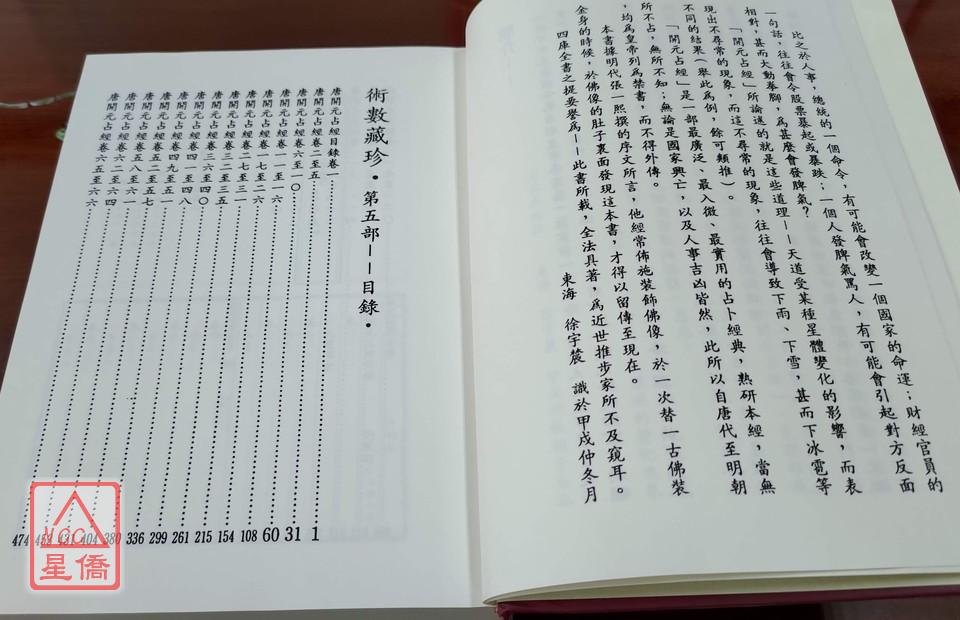 比之於人事，總統的一個命令，有可能會改變一個國家的命運；財經官員的
一句話，往往會令股票暴起或暴跌；一個人發脾氣罵人，有可能會引起對方反面
相對，甚而大動拳腳，為甚麼會發脾氣？
「開元占經」所論述的就是這些道理——天道受某種星體變化的影響，而表
現出不尋常的現象，而這不尋常的現象，往往會導致下雨、下雪，甚而下冰雹等
不同的結果（舉此為例，餘可類推）。
「開元占經」是一部最廣泛、最入微、最實用的占卜經典，熟研本經，當無
所不占，無所不知；無論是國家興亡，以及人事吉凶皆然，此所以自唐代至明朝
，均為皇帝列為禁書，而不得外傳。
本書據明代張一熙撰的序文所言，他經常佈施裝飾佛像，於一次替一古佛裝
全身的時候，於佛像的肚子裏面發現這本書，才得以留傳至現在。
四庫全書之提要舉為——此書所載，全法具著，為近世推步家所不及窺耳。
東海 徐宇辳 識於甲戌仲冬月
術數藏珍・第五部——目錄・
唐開元占經目錄卷一 1
唐開元占經卷二至五 31
唐開元占經卷六至一〇 60
唐開元占經卷一一至一六 108
唐開元占經卷一七至二六 154
唐開元占經卷二七至三一 215
唐開元占經卷三二至三五 261
唐開元占經卷三六至四〇 299
唐開元占經卷四一至四八 336
唐開元占經卷四九至五一 380
唐開元占經卷五二至五七 404
唐開元占經卷五八至六一 431
唐開元占經卷六二至六四 453
唐開元占經卷六五至六六 474
NCC
星僑